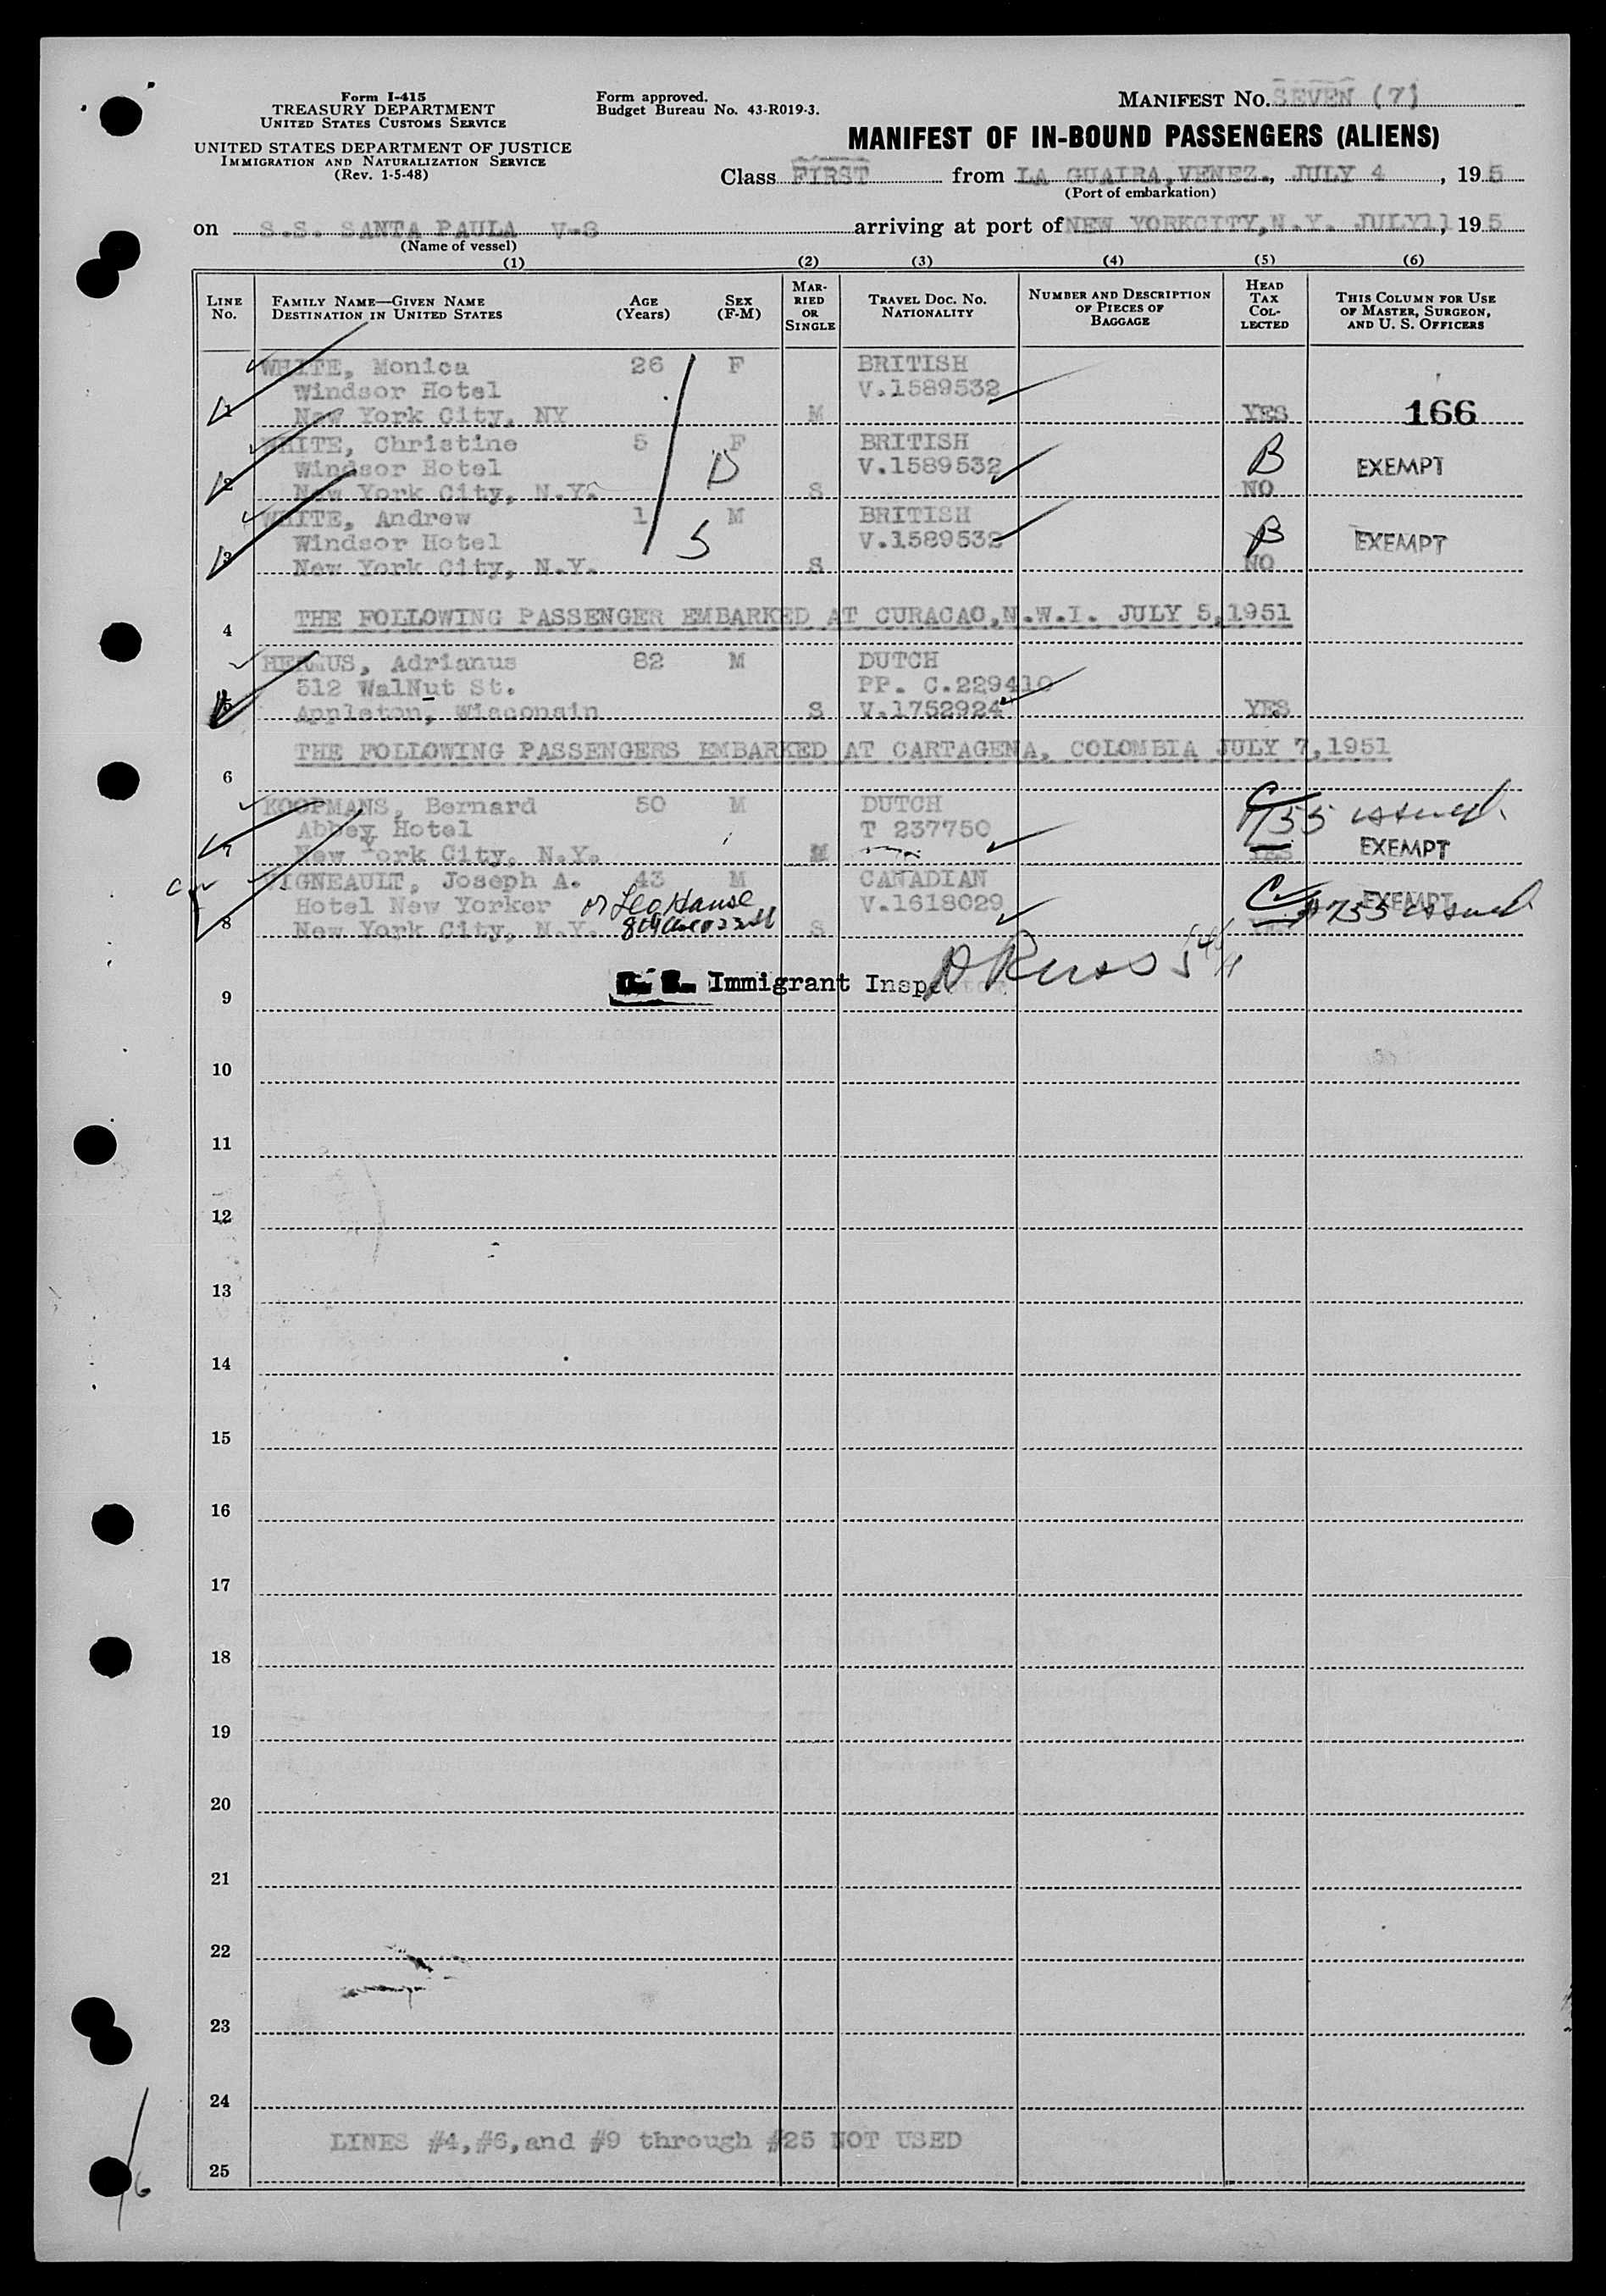 Form I-415
TREASURY DEPARTMENT
UNITED STATES CUSTOMS SERVICE
UNITED STATES DEPARTMENT OF JUSTICE
IMMIGRATION AND NATURALIZATION SERVICE
(Rev. 1-5-48)
Form approved.
Budget Bureau No. 43-R019-3.
MANIFEST NO. SEVEN (7)
MANIFEST OF IN-BOUND PASSENGERS (ALIENS)
Class FIRST from LA GUAIRA, VENEZ., JULY 4, 195
(Port of embarkation)
on S.S. SANTA PAULA V-8 arriving at port of NEW YORKCITY, N.Y. JULY11, 195
(Name of vessel)
(1) (2) (3) (4) (5) (6)
LINE NO. FAMILY NAME—GIVEN NAME DESTINATION IN UNITED STATES AGE (Years) SEX (F-M) MARRIED OR SINGLE TRAVEL DOC. NO. NATIONALITY NUMBER AND DESCRIPTION OF PIECES OF BAGGAGE HEAD TAX COLLECTED THIS COLUMN FOR USE OF MASTER, SURGEON, AND U. S. OFFICERS
WHITE, Monica 26 F BRITISH
Windsor Hotel V.1589532
1 New York City, NY M YES 166
WHITE, Christine 5 F BRITISH
Windsor Hotel V.1589532 B EXEMPT
2 New York City, N.Y. S NO
WHITE, Andrew 1 M BRITISH
Windsor Hotel V.1589532 B EXEMPT
3 New York City, N.Y. S NO
THE FOLLOWING PASSENGER EMBARKED AT CURACAO, N.W.I. JULY 5, 1951
4
HERMUS, Adrianus 82 M DUTCH
512 WalNut St. PP. C.229410
5 Appleton, Wisconsin S V.1752924 YES
THE FOLLOWING PASSENGERS EMBARKED AT CARTAGENA, COLOMBIA JULY 7, 1951
6
KOOPMANS, Bernard 50 M DUTCH
Abbey Hotel T 237750 755 issued
7 New York City, N.Y. M YES EXEMPT
VIGNEAULT, Joseph A. 43 M CANADIAN EXEMPT
Hotel New Yorker or Leo House V.1618029 755 issued
8 New York City, N.Y. S
Immigrant Inspector
9
10
11
12
13
14
15
16
17
18
19
20
21
22
23
24
LINES #4, #6, and #9 through #25 NOT USED
25